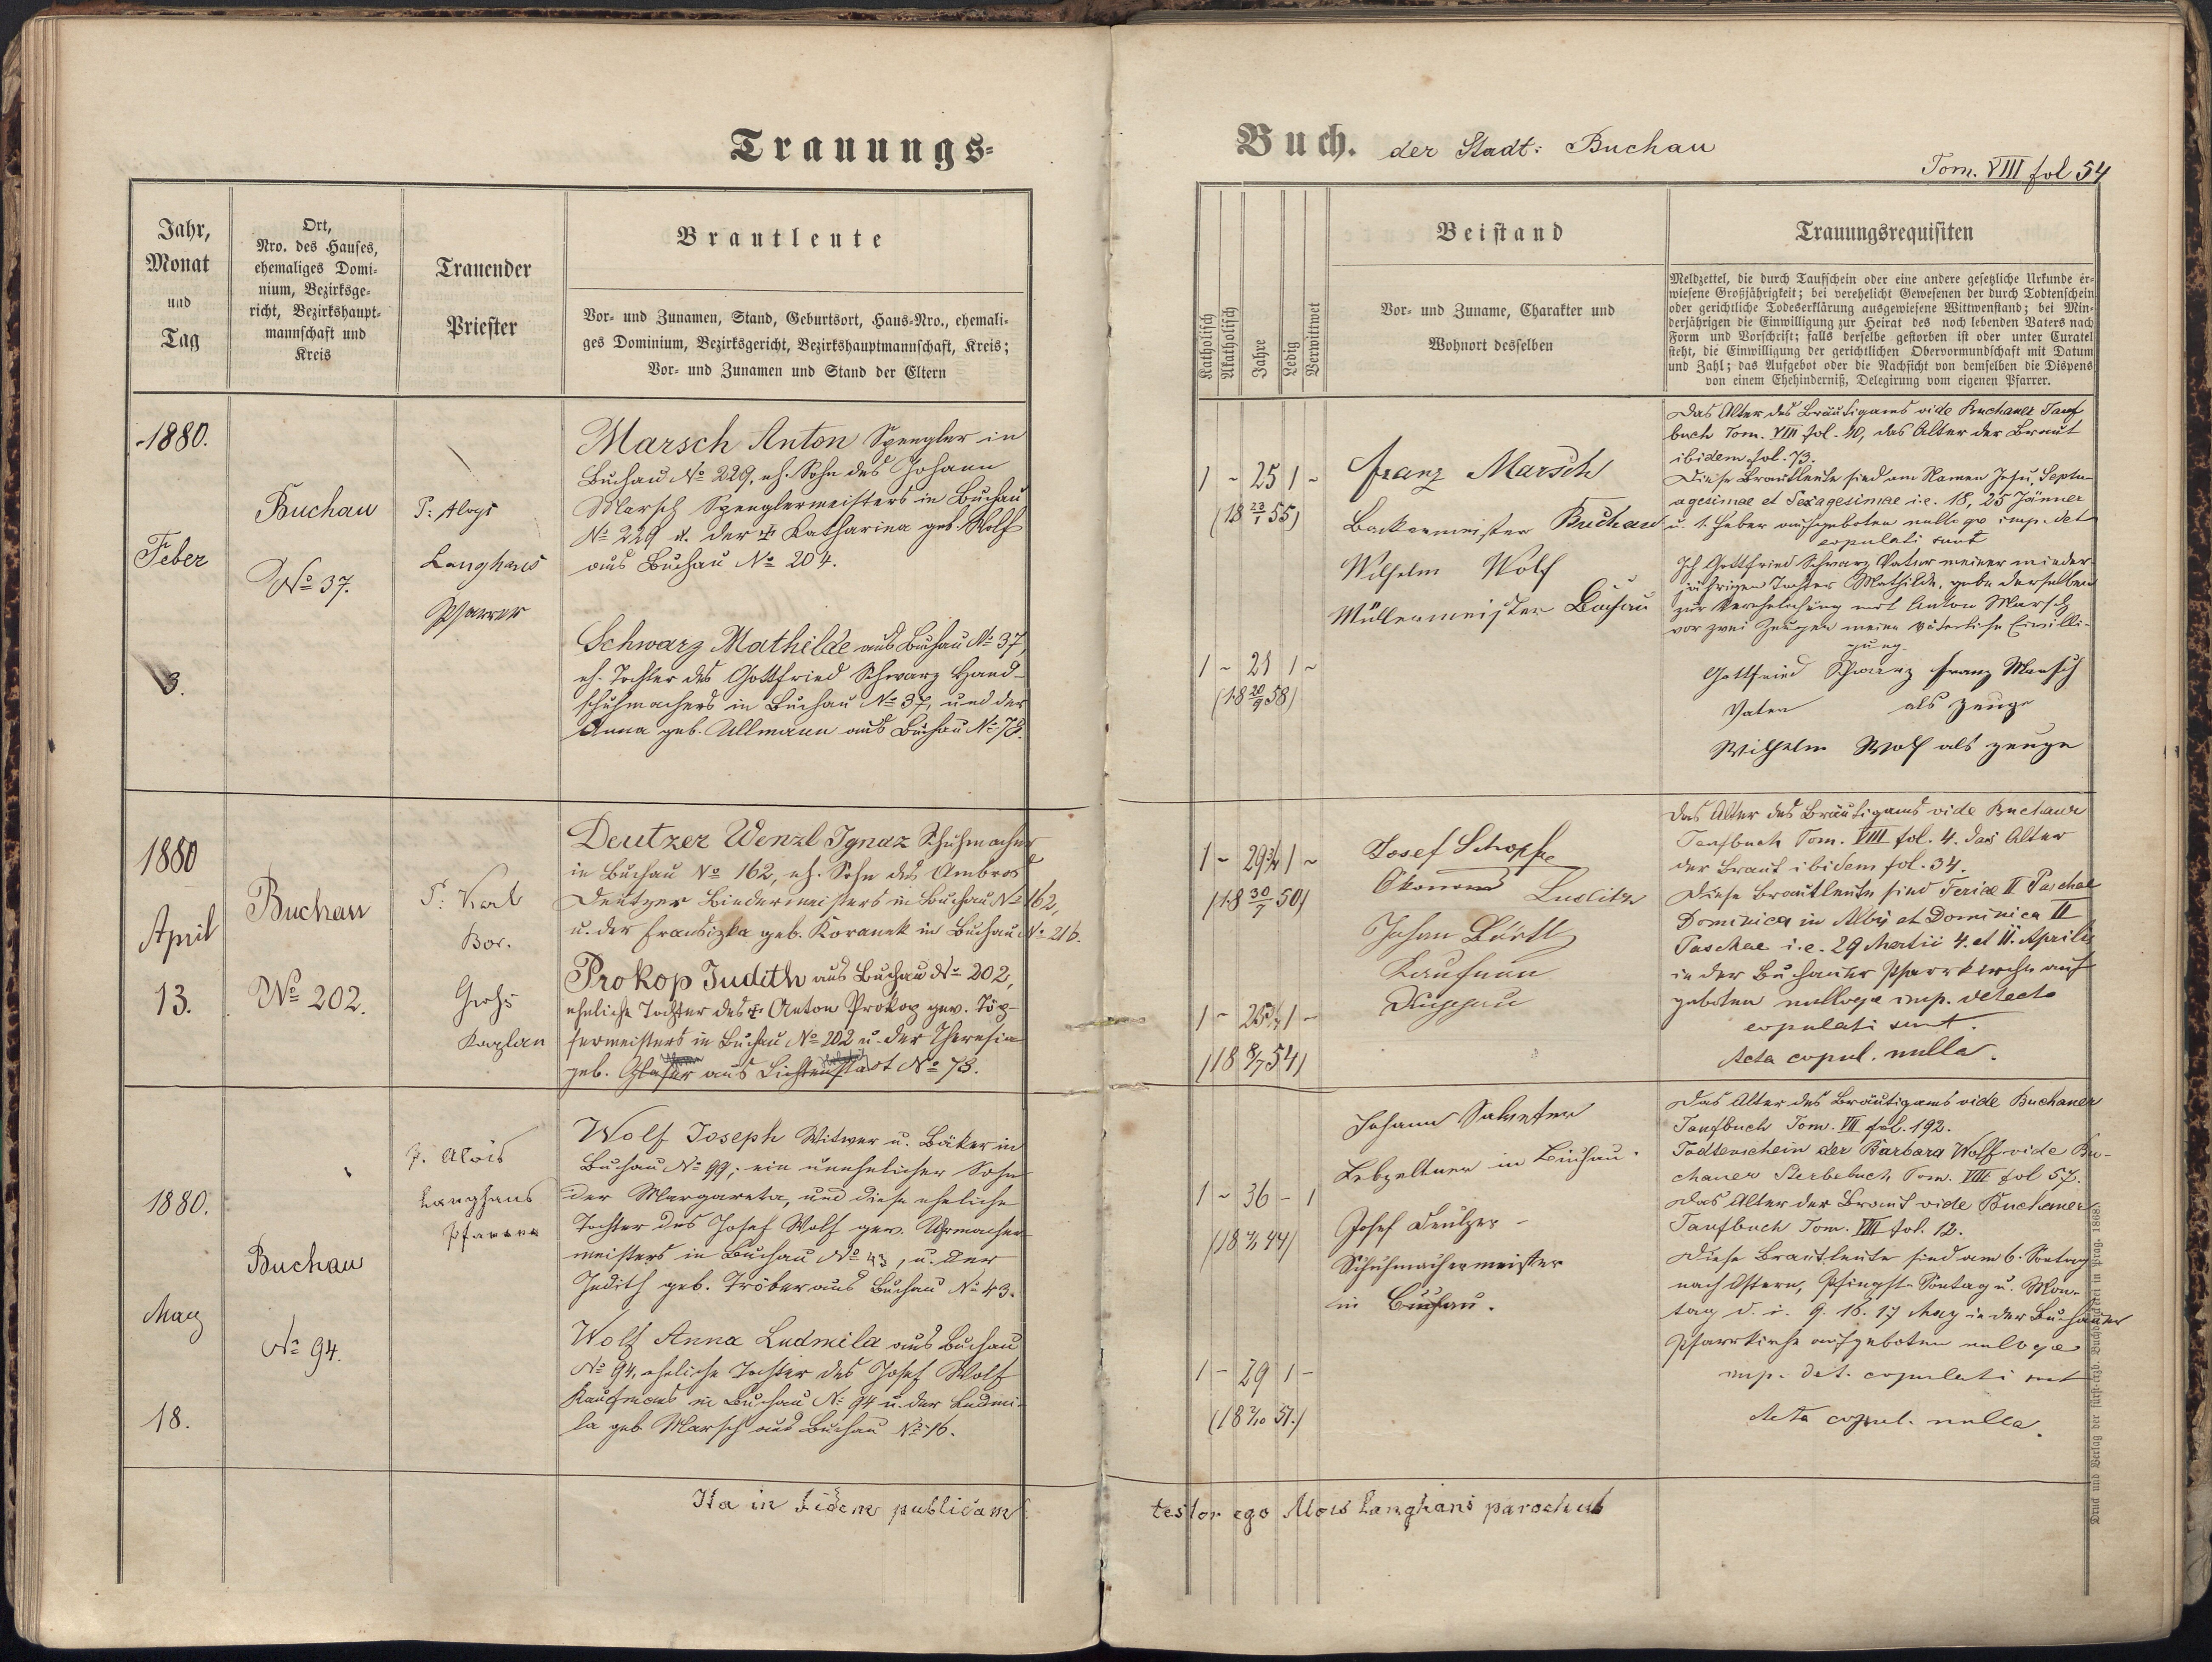 Trauungs-
Jahr,
Monat
und
Tag
Ort,
Nro. des Hauses,
ehemaliges Domi-
nium, Bezirksge-
richt, Bezirkshaupt-
mannschaft und
Kreis
Trauender
Priester
Brautleute
Vor- und Zunamen, Stand, Geburtsort, Haus-Nro., ehemali-
ges Dominium, Bezirksgericht, Bezirkshauptmannschaft, Kreis;
Vor- und Zunamen und Stand der Eltern
1880.
Feber
3.
Buchau
No 37.
P: Aloys
Langhans
Pfarrer
Marsch Anton Spengler in
Buchau No 229, eh. Sohn des Johann
Marsch Spenglermeisters in Buchau
No 229 u. der † Katharina geb. Wolf
aus Buchau No 204.
Schwarz Mathilde aus Buchau No 37,
eh. Tochter des Gottfried Schwarz Hand-
schuhmachers in Buchau No 37, und der
Anna geb. Ullmann aus Buchau No 78.
1880
April
13.
Buchau
No 202.
P: Karl
Bor.
Grohs
Kaplan
Deutzer Wenzl Ignaz Schuhmacher
in Buchau No 162, eh. Sohn des Ambros
Deutzer Bindermeisters in Buchau No 162,
u. der Franziska geb. Koranek in Buchau No 216.
Prokop Judith aus Buchau No 202,
eheliche Tochter des † Anton Prokop gew. Töp-
fermeisters in Buchau No 202 u. der Theresia
geb. Glaser aus Lichtenstadt No 78.
1880.
May
18.
Buchau
No 94.
P. Alois
Langhans
Pfarrer
Wolf Joseph Witwer u. Bäker in
Buchau No 99; ein unehelicher Sohn
der Margareta, und diese eheliche
Tochter des Josef Wolf gew. Uhrmacher
meisters in Buchau No 43, u. der
Judith geb. Tröber aus Buchau No 43.
Wolf Anna Ludmila aus Buchau
No 94, eheliche Tochter des Josef Wolf
Kaufmans in Buchau No 94 u. der Ludmi-
la geb. Marsch aus Buchau No 76.
Ita in fidem publicam
Buch. der Stadt: Buchau
Tom. VIII fol 54
Katholisch
Akatholisch
Jahre
Ledig
Verwittwet
Beistand
Vor- und Zuname, Charakter und
Wohnort desselben
Trauungsrequisiten
Meldzettel, die durch Taufschein oder eine andere gesetzliche Urkunde er-
wiesene Großjährigkeit; bei verehelicht Gewesenen der durch Todtenschein
oder gerichtliche Todeserklärung ausgewiesene Wittwenstand; bei Min-
derjährigen die Einwilligung zur Heirat des noch lebenden Vaters nach
Form und Vorschrift; falls derselbe gestorben ist oder unter Curatel
steht, die Einwilligung der gerichtlichen Obervormundschaft mit Datum
und Zahl; das Aufgebot oder die Nachsicht von demselben die Dispens
von einem Ehehinderniß, Delegirung vom eigenen Pfarrer.
1 ~ 25 1 ~
(18 23/1 55)
1 ~ 21 1 ~
(18 20/9 58)
Franz Marsch
Backermeister Buchau
Wilhelm Wolf
Müllermeister Buchau
Das Alter des Bräutigams vide Buchauer Tauf
buch Tom. VIII fol. 40, das Alter der Braut
ibidem fol. 73.
Diese Brautleute sind am Namen Jesu, Septu-
agesimae et Sexagesimae i.e. 18, 25 Jänner
u. 1. Feber aufgeboten nulloqe imp. det
copulati sunt
Ich Gottfried Schwarz Vater meiner minder
jährigen Tochter Mathilde, gebe derselben
zur Verehelichung mit Anton Marsch
vor zwei Zeugen meine väterliche Einwilli-
gung.
Gottfried Schwarz Franz Marsch
Vater als Zeuge
Wilhelm Wolf als Zeuge
1 ~ 29 3/4 1 ~
(18 30/7 50)
1 ~ 25 3/4 1 ~
(18 8/7 54)
Josef Schopfe
Ökonom Luditz
Johan Bartl
Kaufman
Das Alter des Bräutigams vide Buchauer
Taufbuch Tom. VIII fol. 4. das Alter
der Braut ibidem fol. 34.
Diese Brautleute sind Feriae II Paschae
Dominica in Albis et Dominica II
Paschae i.e. 29 Martii 4. et 11. Aprilis
in der Buchauer Pfarrkirche auf
geboten nulloqe imp. detecto
copulati sunt.
Acta copul. nulla.
1 ~ 36 - 1
1 - 29 1 -
(18 2/10 51.)
Johann
Lebzeltner in Buchau.
Josef Deutzer
Schuhmachermeister
in Buchau.
Das Alter des Bräutigams vide Buchauer
Taufbuch Tom. VII fol. 192.
Todtenschein der Barbara Wolf vide Bu-
chauer Sterbebuch Tom. VIII fol 57.
Das Alter der Braut vide Buchauer
Taufbuch Tom. VIII fol. 12.
Diese Brautleute sind am 6. Sontag
nach Ostern, Pfingst-Sontag u. Mon-
tag d. i. 9. 16. 17 May in der Buchauer
Pfarrkirche aufgeboten nulloqe
imp. det. copulati sunt
Acta copul. nulla.
testor ego Alois Langhans parochus
Druck und Verlag der fürst-erzb. Buchdruckerei in Prag. 1868.